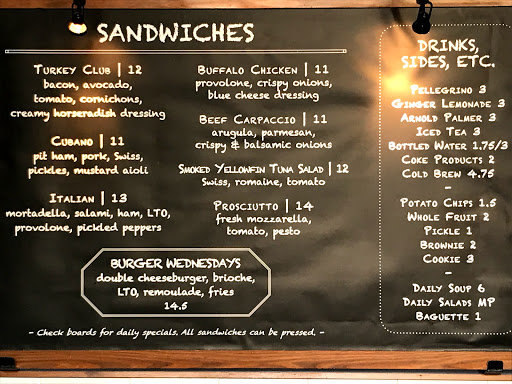 SANDWICHES
TURKEY CLUB | 12
bacon, avocado,
tomato, cornichons,
creamy horseradish dressing
CUBANO | 11
pit ham, pork, Swiss,
pickles, mustard aioli
ITALIAN | 13
mortadella, salami, ham, LTO,
provolone, pickled peppers
BUFFALO CHICKEN | 11
provolone, crispy onions,
blue cheese dressing
BEEF CARPACCIO | 11
arugula, parmesan,
crispy & balsamic onions
SMOKED YELLOWFIN TUNA SALAD | 12
Swiss, romaine, tomato
PROSCIUTTO | 14
fresh mozzarella,
tomato, pesto
BURGER WEDNESDAYS
double cheeseburger, brioche,
LTO, remoulade, fries
14.5
- Check boards for daily specials. All sandwiches can be pressed. -
DRINKS,
SIDES, ETC.
PELLEGRINO 3
GINGER LEMONADE 3
ARNOLD PALMER 3
ICED TEA 3
BOTTLED WATER 1.75/3
COKE PRODUCTS 2
COLD BREW 4.75
-
POTATO CHIPS 1.5
WHOLE FRUIT 2
PICKLE 1
BROWNIE 2
COOKIE 3
-
DAILY SOUP 6
DAILY SALADS MP
BAGUETTE 1